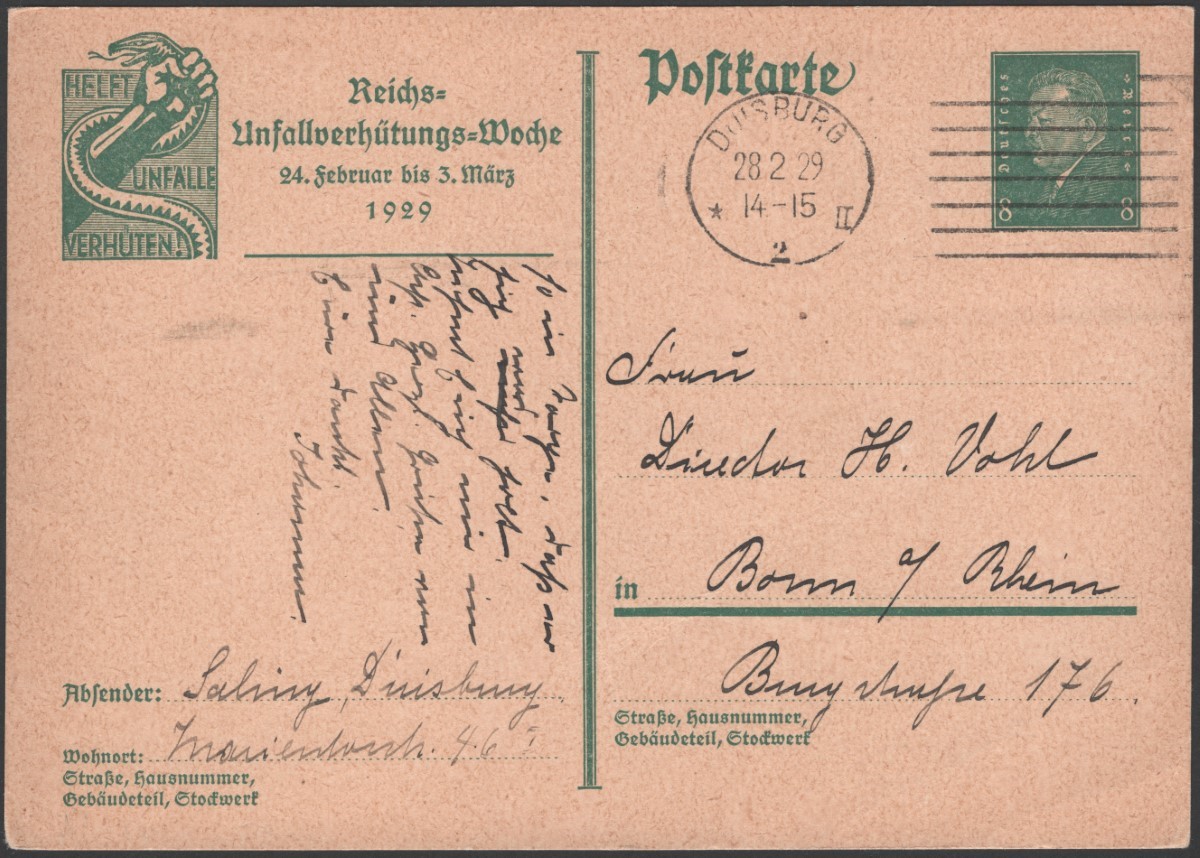 HELFT
UNFÄLLE
VERHÜTEN!
Reichs=
Unfallverhütungs=Woche
24. Februar bis 3. März
1929
Postkarte
DUISBURG
28 2 29
14-15
* II
2
Deutsches Reich
8 8
so in Sorge, daß er
und
fort.
in
von
und Allen.
Johanna.
Frau
Director H. Vohl
in Bonn a/ Rhein
Burgstraße 176
Straße, Hausnummer,
Gebäudeteil, Stockwerk
Absender: Saling, Duisburg
Wohnort: Marientorstr. 46 I
Straße, Hausnummer,
Gebäudeteil, Stockwerk